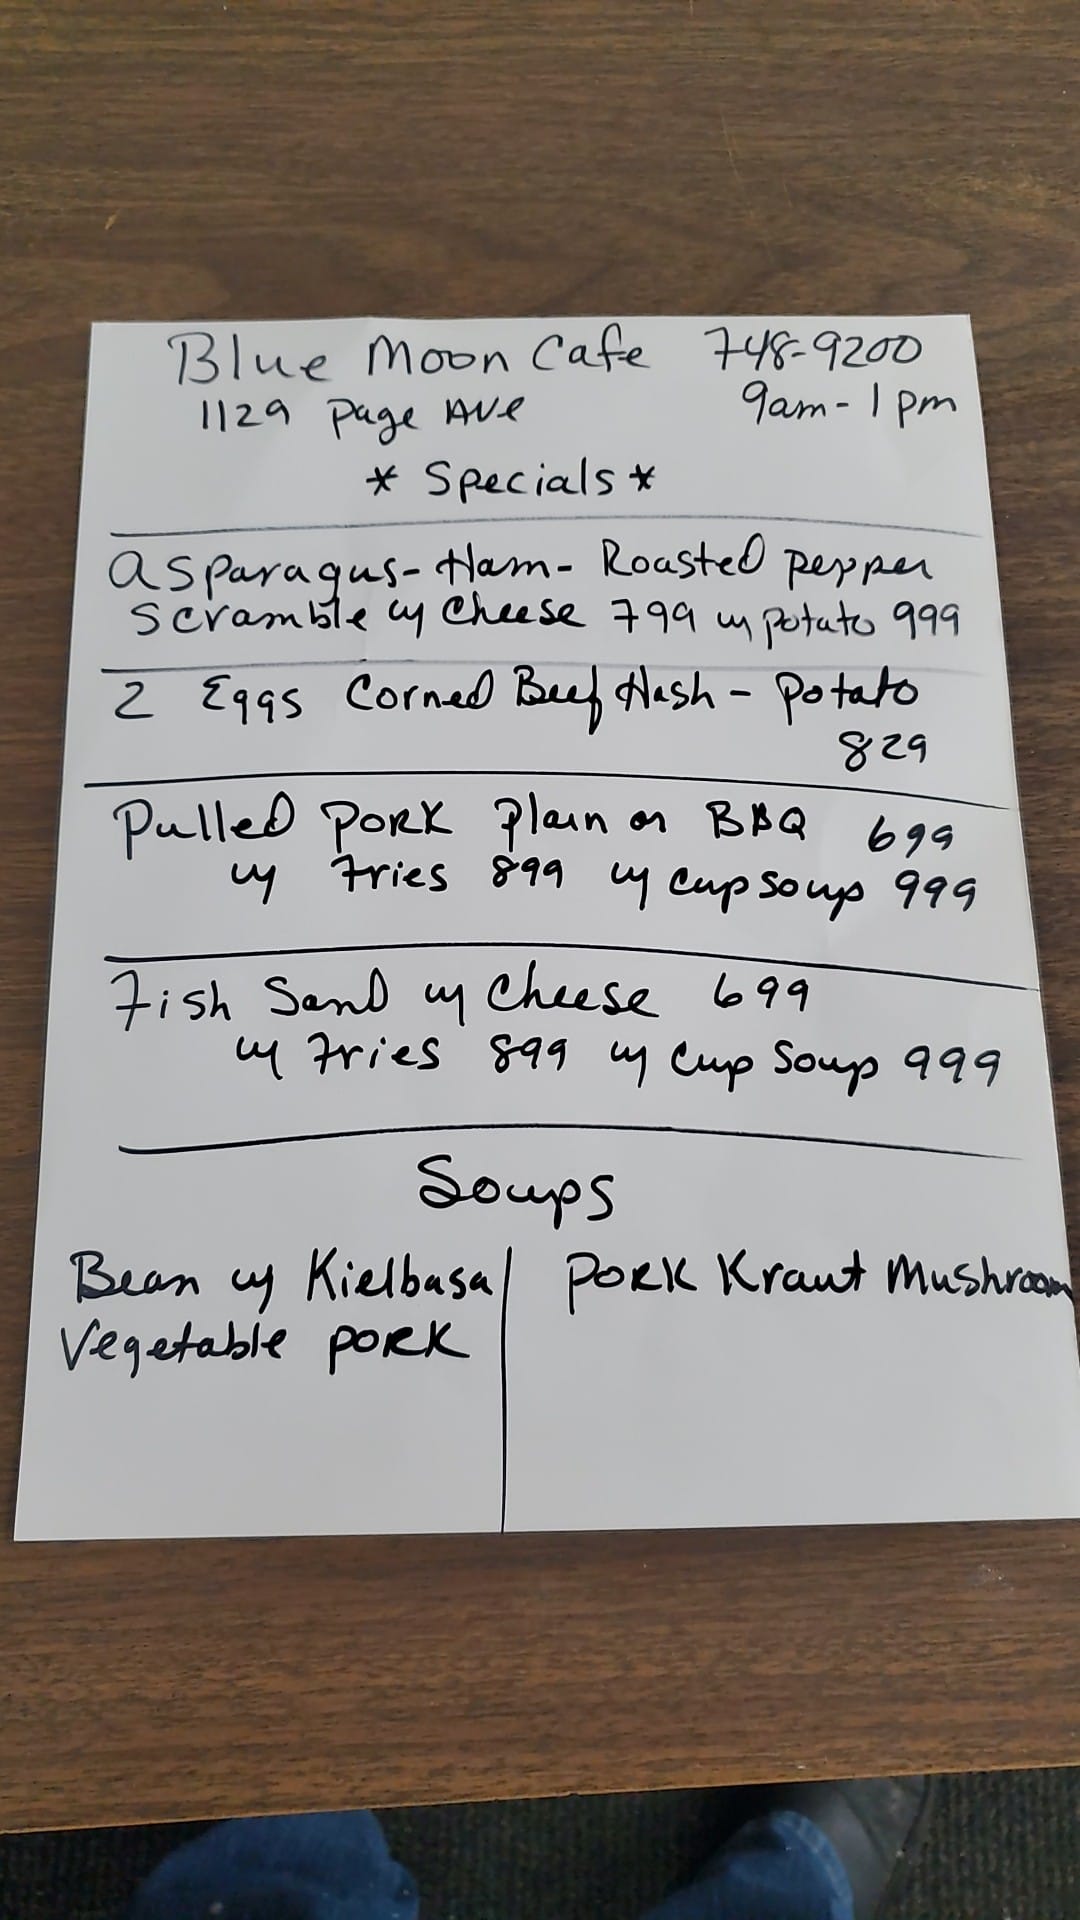 Blue Moon Cafe 748-9200
1129 Page Ave 9am-1pm
* Specials *
Asparagus-Ham-Roasted pepper
Scramble w/ Cheese 799 w/ potato 999
2 Eggs Corned Beef Hash - Potato
829
Pulled PORK Plain or BBQ 699
w/ Fries 899 w/ cup soup 999
Fish Sand w/ Cheese 699
w/ Fries 899 w/ Cup Soup 999
Soups
Bean w/ Kielbasa
Vegetable PORK
PORK Kraut Mushroom